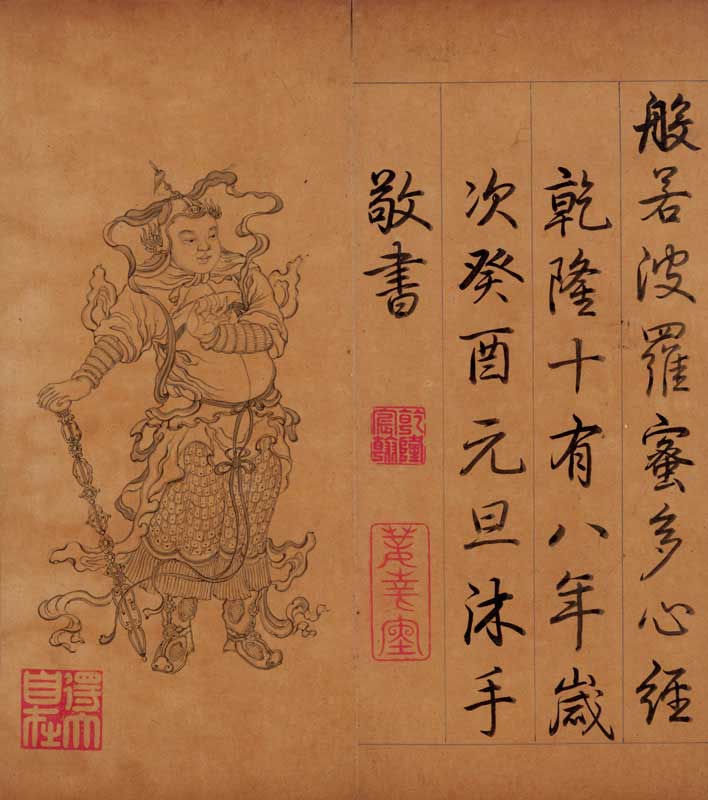 般若波羅蜜多心經
乾隆十有八年歲
次癸酉元旦沐手
敬書
乾隆宸翰
得大自在